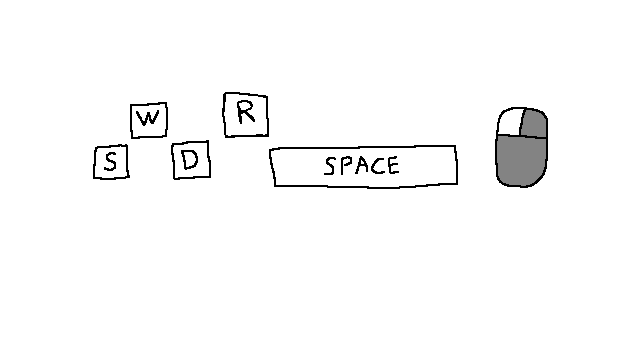 W
R
S
D
SPACE